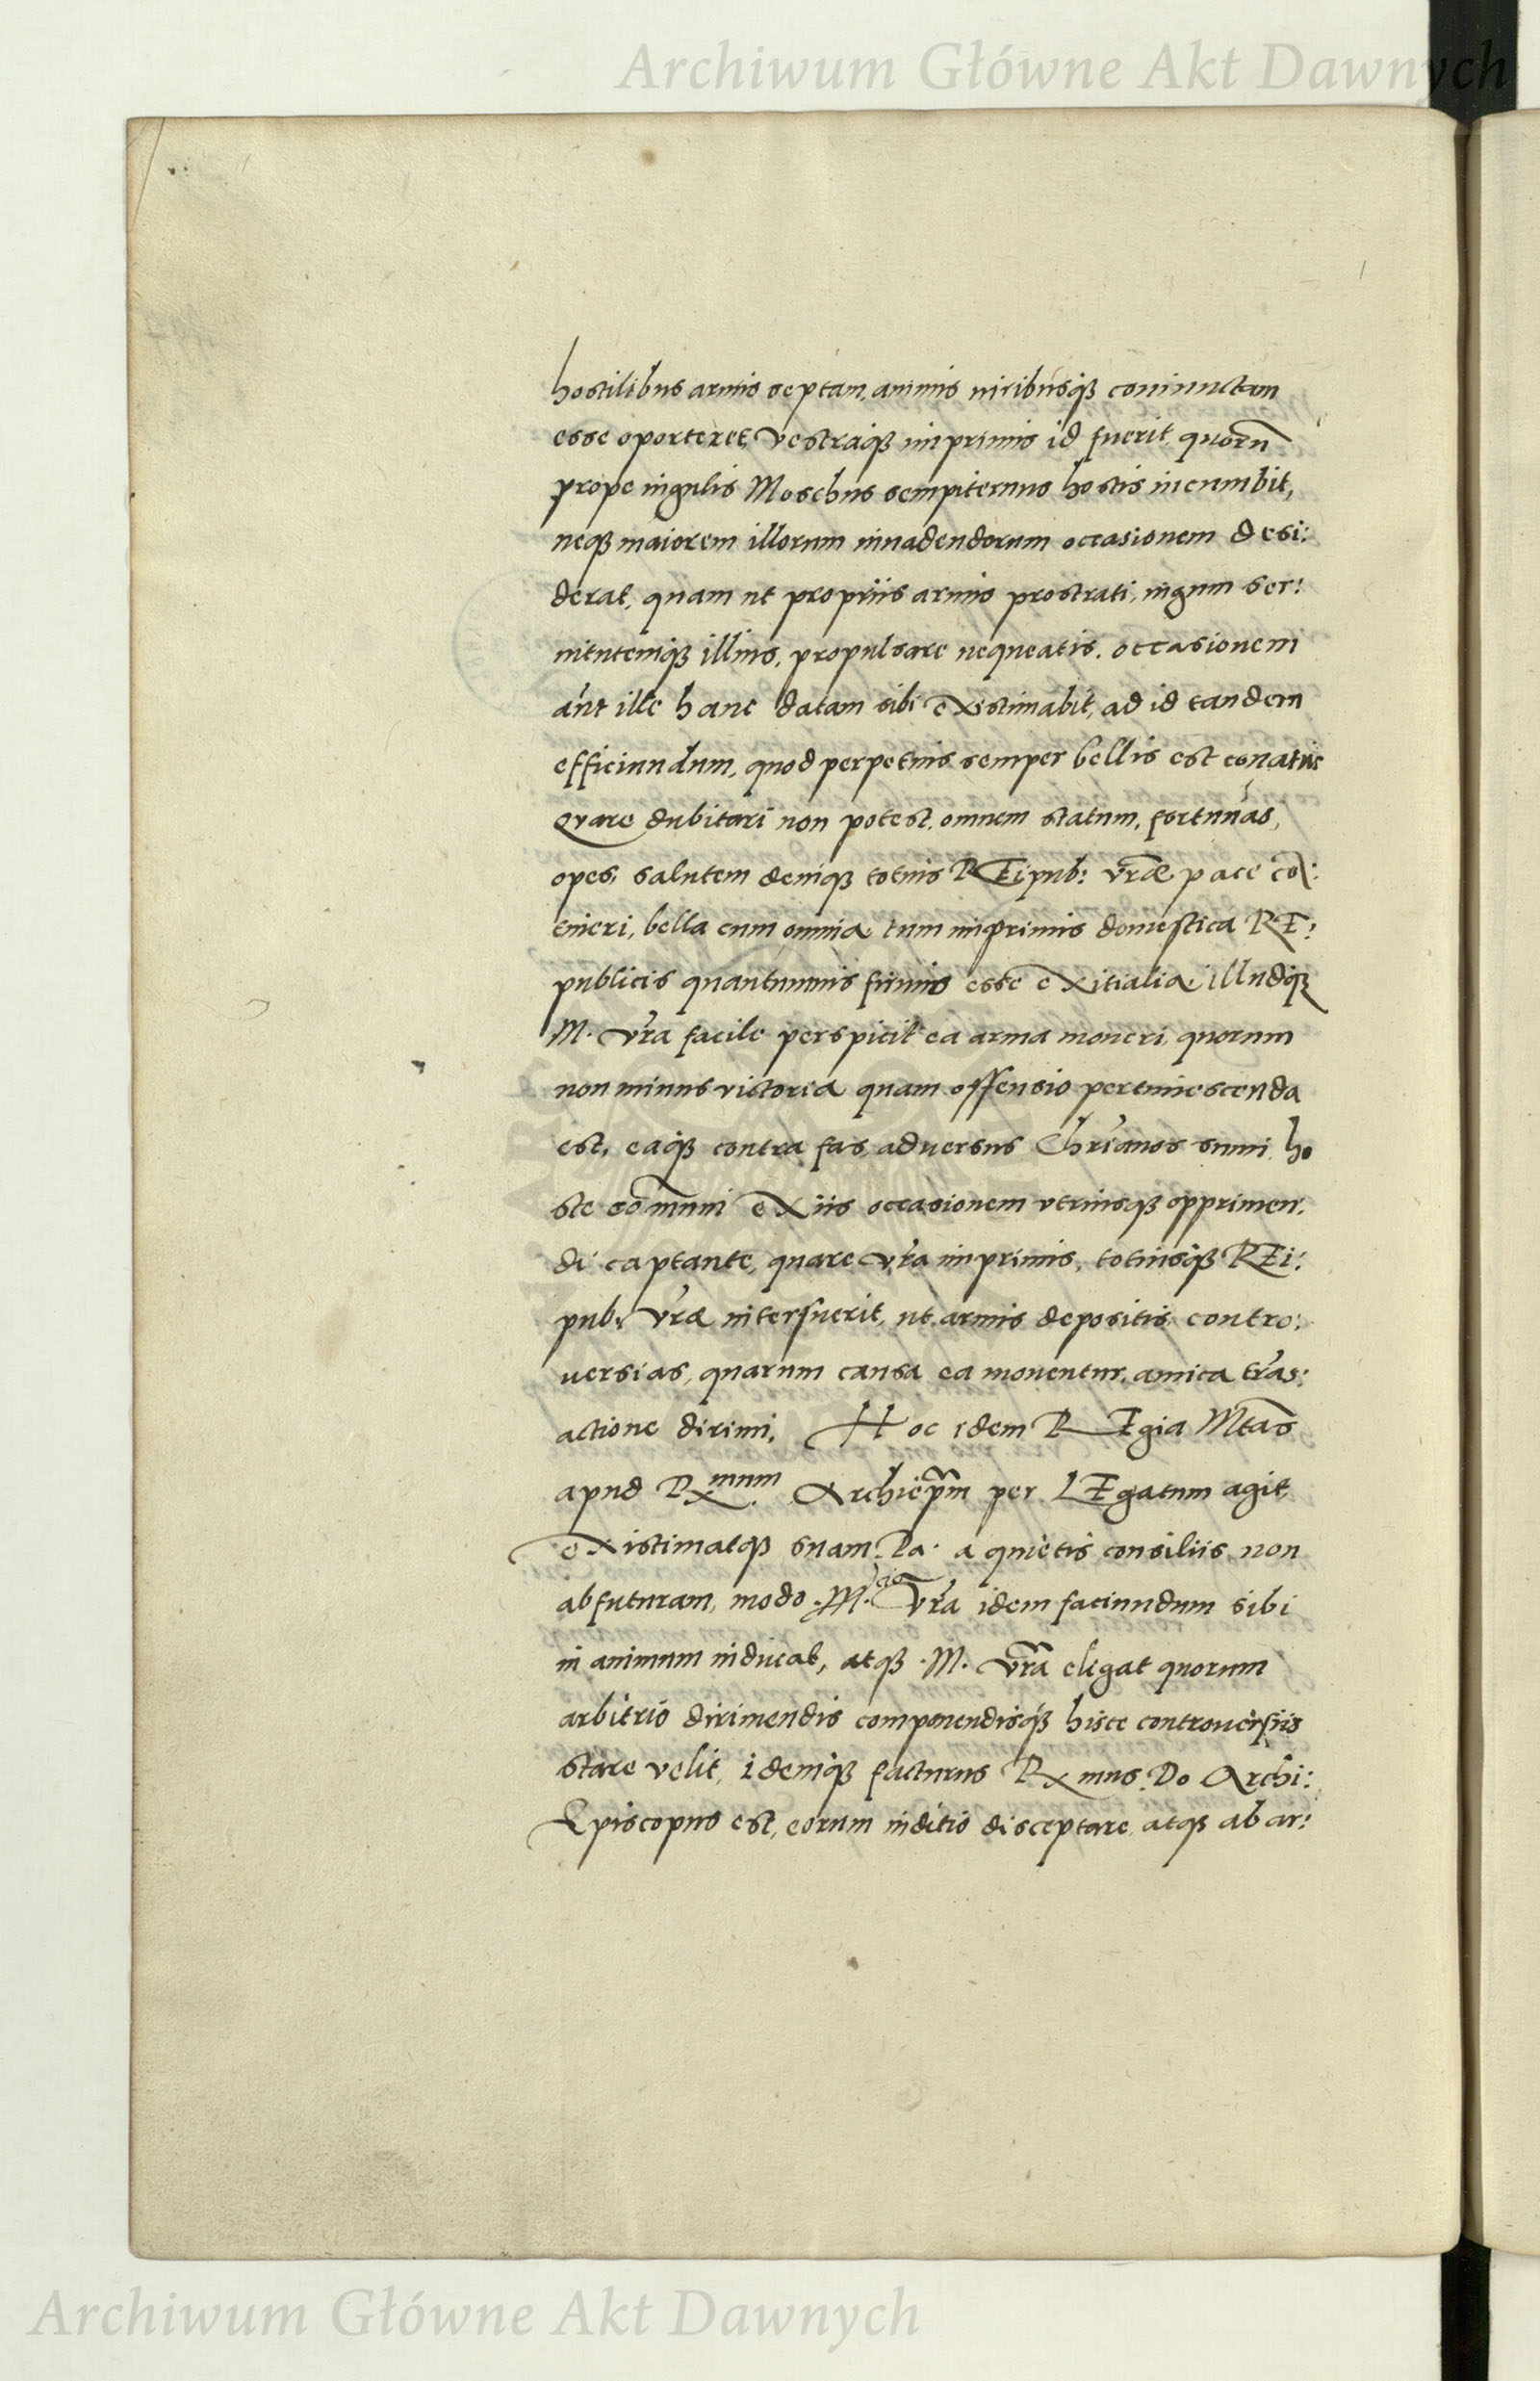 Archiwum Główne Akt Dawnych
hostilibus armis septam, animis viribusq; coniunctam
esse oporteret, vestraq; imprimis id fuerit, quorū
prope iugulis Moschus sempiternus hostis incumbit,
neq; maiorem illorum inuadendorum occasionem desi:
derat, quam ut propriis armis prostrati, iugum ser:
uitutemq; illius, propulsare nequeatis. occasionem
aūt ille hanc datam sibi existimabit, ad id tandem
efficiundum, quod perpetuis semper bellis est conatus
Quare dubitari non potest, omnem statum, fortunas,
opes, salutem deniq; totius REipub: vr̄æ pace cō:
tineri, bella cum omnia tum imprimis domestica RE:
publicis quantumuis firmis esse exitialia, illudq;
M. vr̄a facile perspicit ea arma moueri, quorum
non minus victoria quam offensio pertimescenda
est, eaq; contra fas, aduersus Chrīanos sumi, ho
ste cōmuni ex iis occasionem utriusq; opprimen:
di captante, quare vr̄a imprimis, totiusq; REi:
pub: vr̄æ interfuerit, ut armis depositis contro:
uersias, quarum causa ea mouentur, amica trās:
actione dirimi. Hoc idem REgia Mtās
apud Rxmum Archiep̄m per LEgatum agit
existimatq; suam Pa. a quietis consiliis non
abfuturam, modo .M.cia Vr̄a idem faciundum sibi
in animum inducat, atq; .M. vr̄a eligat quorum
arbitrio dirimendis componendisq; hisce controuersiis
stare velit, idemq; facturus Rxmus Do Archi:
Episcopus est, eorum iuditio disceptare, atq; ab ar:
Archiwum Główne Akt Dawnych